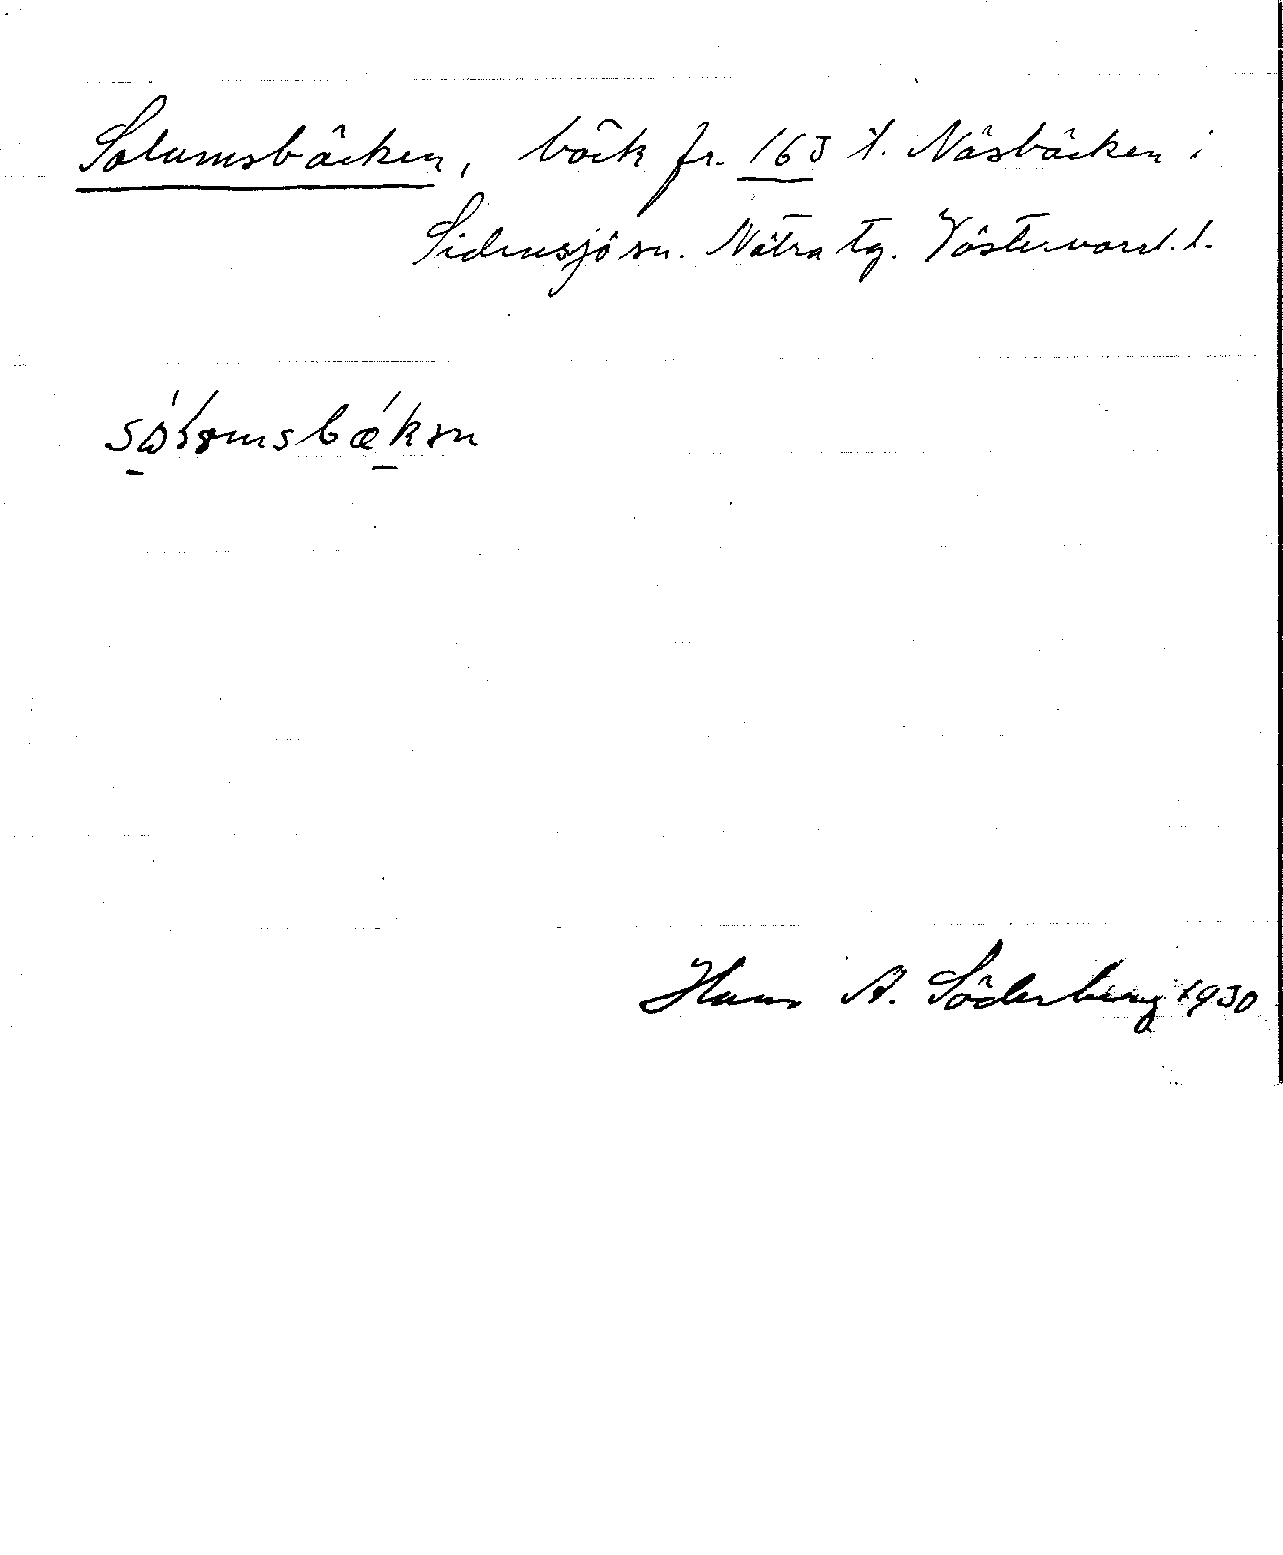 Solumsbäcken, bäck fr. 163 t. Näsbäcken i
Sidensjö sn. Nätra tg. Västernorrl. l.
sɷ́lomsbǽkən
Hans A. Söderberg 1930